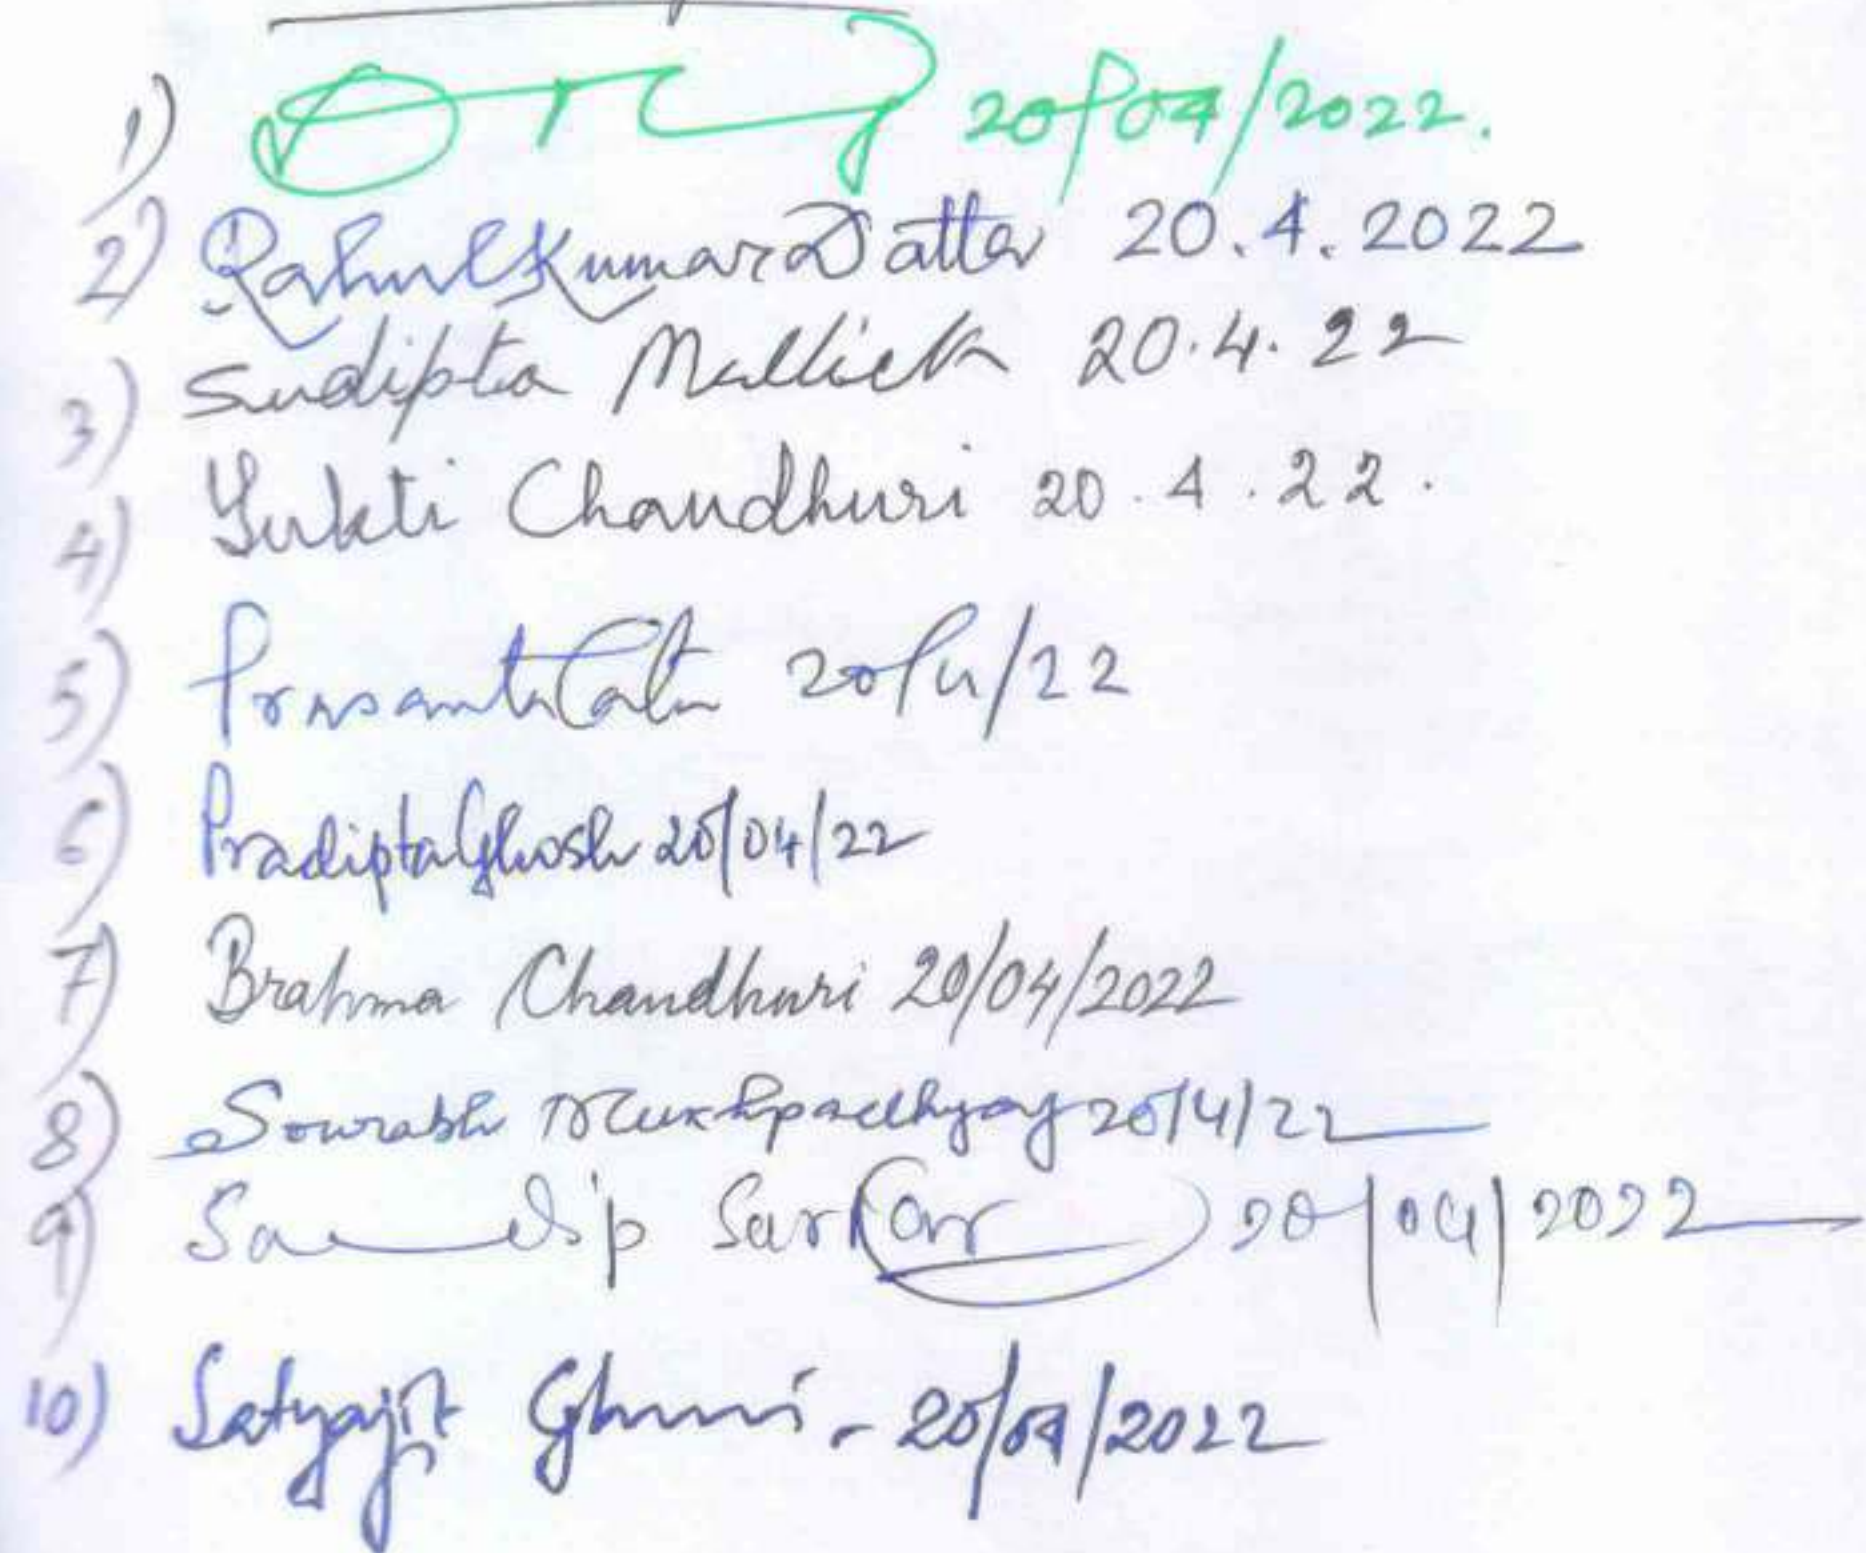 1) 20/04/2022.
2) Rahul Kumar Datta 20.4.2022
3) Sudipta Mallick 20.4.22
4) Yukti Chaudhuri 20.4.22.
5) Prasanta 20/4/22
6) Pradipta Ghosh 20/04/22
7) Brahma Chaudhuri 20/04/2022
8) Sourabh Mukhopadhyay 20/4/22
9) Sandip Sarkar 20/04/2022
10) Satyajit - 20/04/2022